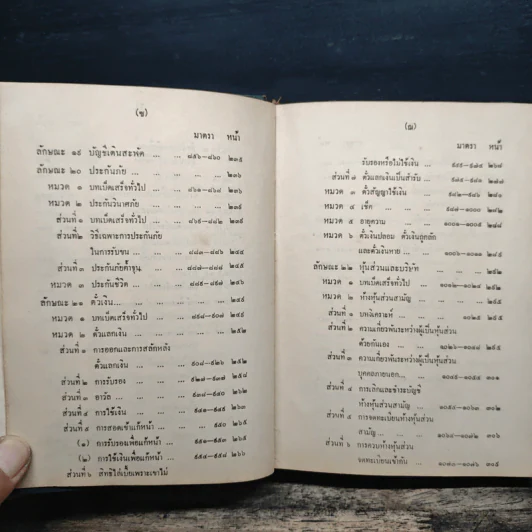 (ช)
มาตรา หน้า
ลักษณะ ๑๙ บัญชีเดินสะพัด ... ... ๘๕๖—๘๖๐ ๒๓๕
ลักษณะ ๒๐ ประกันภัย ... ... ... ๒๓๖
หมวด ๑ บทเบ็ดเสร็จทั่วไป ... ... ๘๖๑—๘๖๘
หมวด ๒ ประกันวินาศภัย ... ...
ส่วนที่ ๑ บทเบ็ดเสร็จทั่วไป ... ... ๘๖๙—๘๘๒
ส่วนที่๒ วิธีเฉพาะการประกันภัย
ในการรับขน ... ... ๘๘๓—๘๘๖ ๒๔๔
ส่วนที่ ๓ ประกันภัยค้ำจุน ... ... ๘๘๗—๘๘๘ ๒๔๕
หมวด ๓ ประกันชีวิต ... ... ๘๘๙—๘๙๗
ลักษณะ ๒๑ ตั๋วเงิน ... ... ...
หมวด ๑ บทเบ็ดเสร็จทั่วไป ... ... ๘๙๘—๙๐๗
หมวด ๒ ตั๋วแลกเงิน ... ... ๒๕๒
ส่วนที่ ๑ การออกและการสลักหลัง
ตั๋วแลกเงิน ... ... ๙๐๘—๙๒๖ ๒๕๒
ส่วนที่ ๒ การรับรอง ... ... ๙๒๗—๙๓๗
ส่วนที่ ๓ อาวัล ... ... ๙๓๘—๙๔๐
ส่วนที่ ๔ การใช้เงิน ... ... ๙๔๑—๙๔๙
ส่วนที่ ๕ การสอดเข้าแก้หน้า ... ๙๕๐
(๑) การรับรองเพื่อแก้หน้า ... ๙๕๑—๙๕๓
(๒) การใช้เงินเพื่อแก้หน้า ... ๙๕๔—๙๕๘ ๒๖๖
ส่วนที่ ๖ สิทธิไล่เบี้ยเพราะเขาไม่
มาตรา หน้า
รับรองหรือไม่ใช้เงิน ... ๙๕๙—๙๗๔ ๒๖๗
ส่วนที่ ๗ ตั๋วแลกเงินเป็นสำรับ ... ๙๗๕—๙๘๑
หมวด ๓ ตั๋วสัญญาใช้เงิน ... ๙๘๒—๙๘๖
หมวด ๔ เช็ค ... ... ๙๘๗—๑๐๐๐
หมวด ๕ อายุความ ... ... ๑๐๐๑—๑๐๐๕
หมวด ๖ ตั๋วเงินปลอม ตั๋วเงินถูกลัก
และตั๋วเงินหาย ... ... ๑๐๐๖—๑๐๑๑
ลักษณะ ๒๒ หุ้นส่วนและบริษัท
หมวด ๑ บทเบ็ดเสร็จทั่วไป ... ๑๐๑๒—๑๐๒๔
หมวด ๒ ห้างหุ้นส่วนสามัญ ... ...
ส่วนที่ ๑ บทวิเคราะห์ ... ๑๐๒๕
ส่วนที่ ๒ ความเกี่ยวพันระหว่างผู้เป็นหุ้นส่วน
ด้วยกันเอง ... ... ๑๐๒๖—๑๐๔๘
ส่วนที่ ๓ ความเกี่ยวพันระหว่างผู้เป็นหุ้นส่วน
บุคคลภายนอก... ... ๑๐๔๙—๑๐๕๔ ๓๐๑
ส่วนที่ ๔ การเลิกและชำระบัญชี
ห้างหุ้นส่วนสามัญ ... ๑๐๕๕—๑๐๖๓
ส่วนที่ ๕ การจดทะเบียนห้างหุ้นส่วน
สามัญ ... ... ๑๐๖๔—๑๐๗๒
ส่วนที่ ๖ การควบห้างหุ้นส่วน
จดทะเบียนเข้ากัน ... ๑๐๗๓—๑๐๗๖